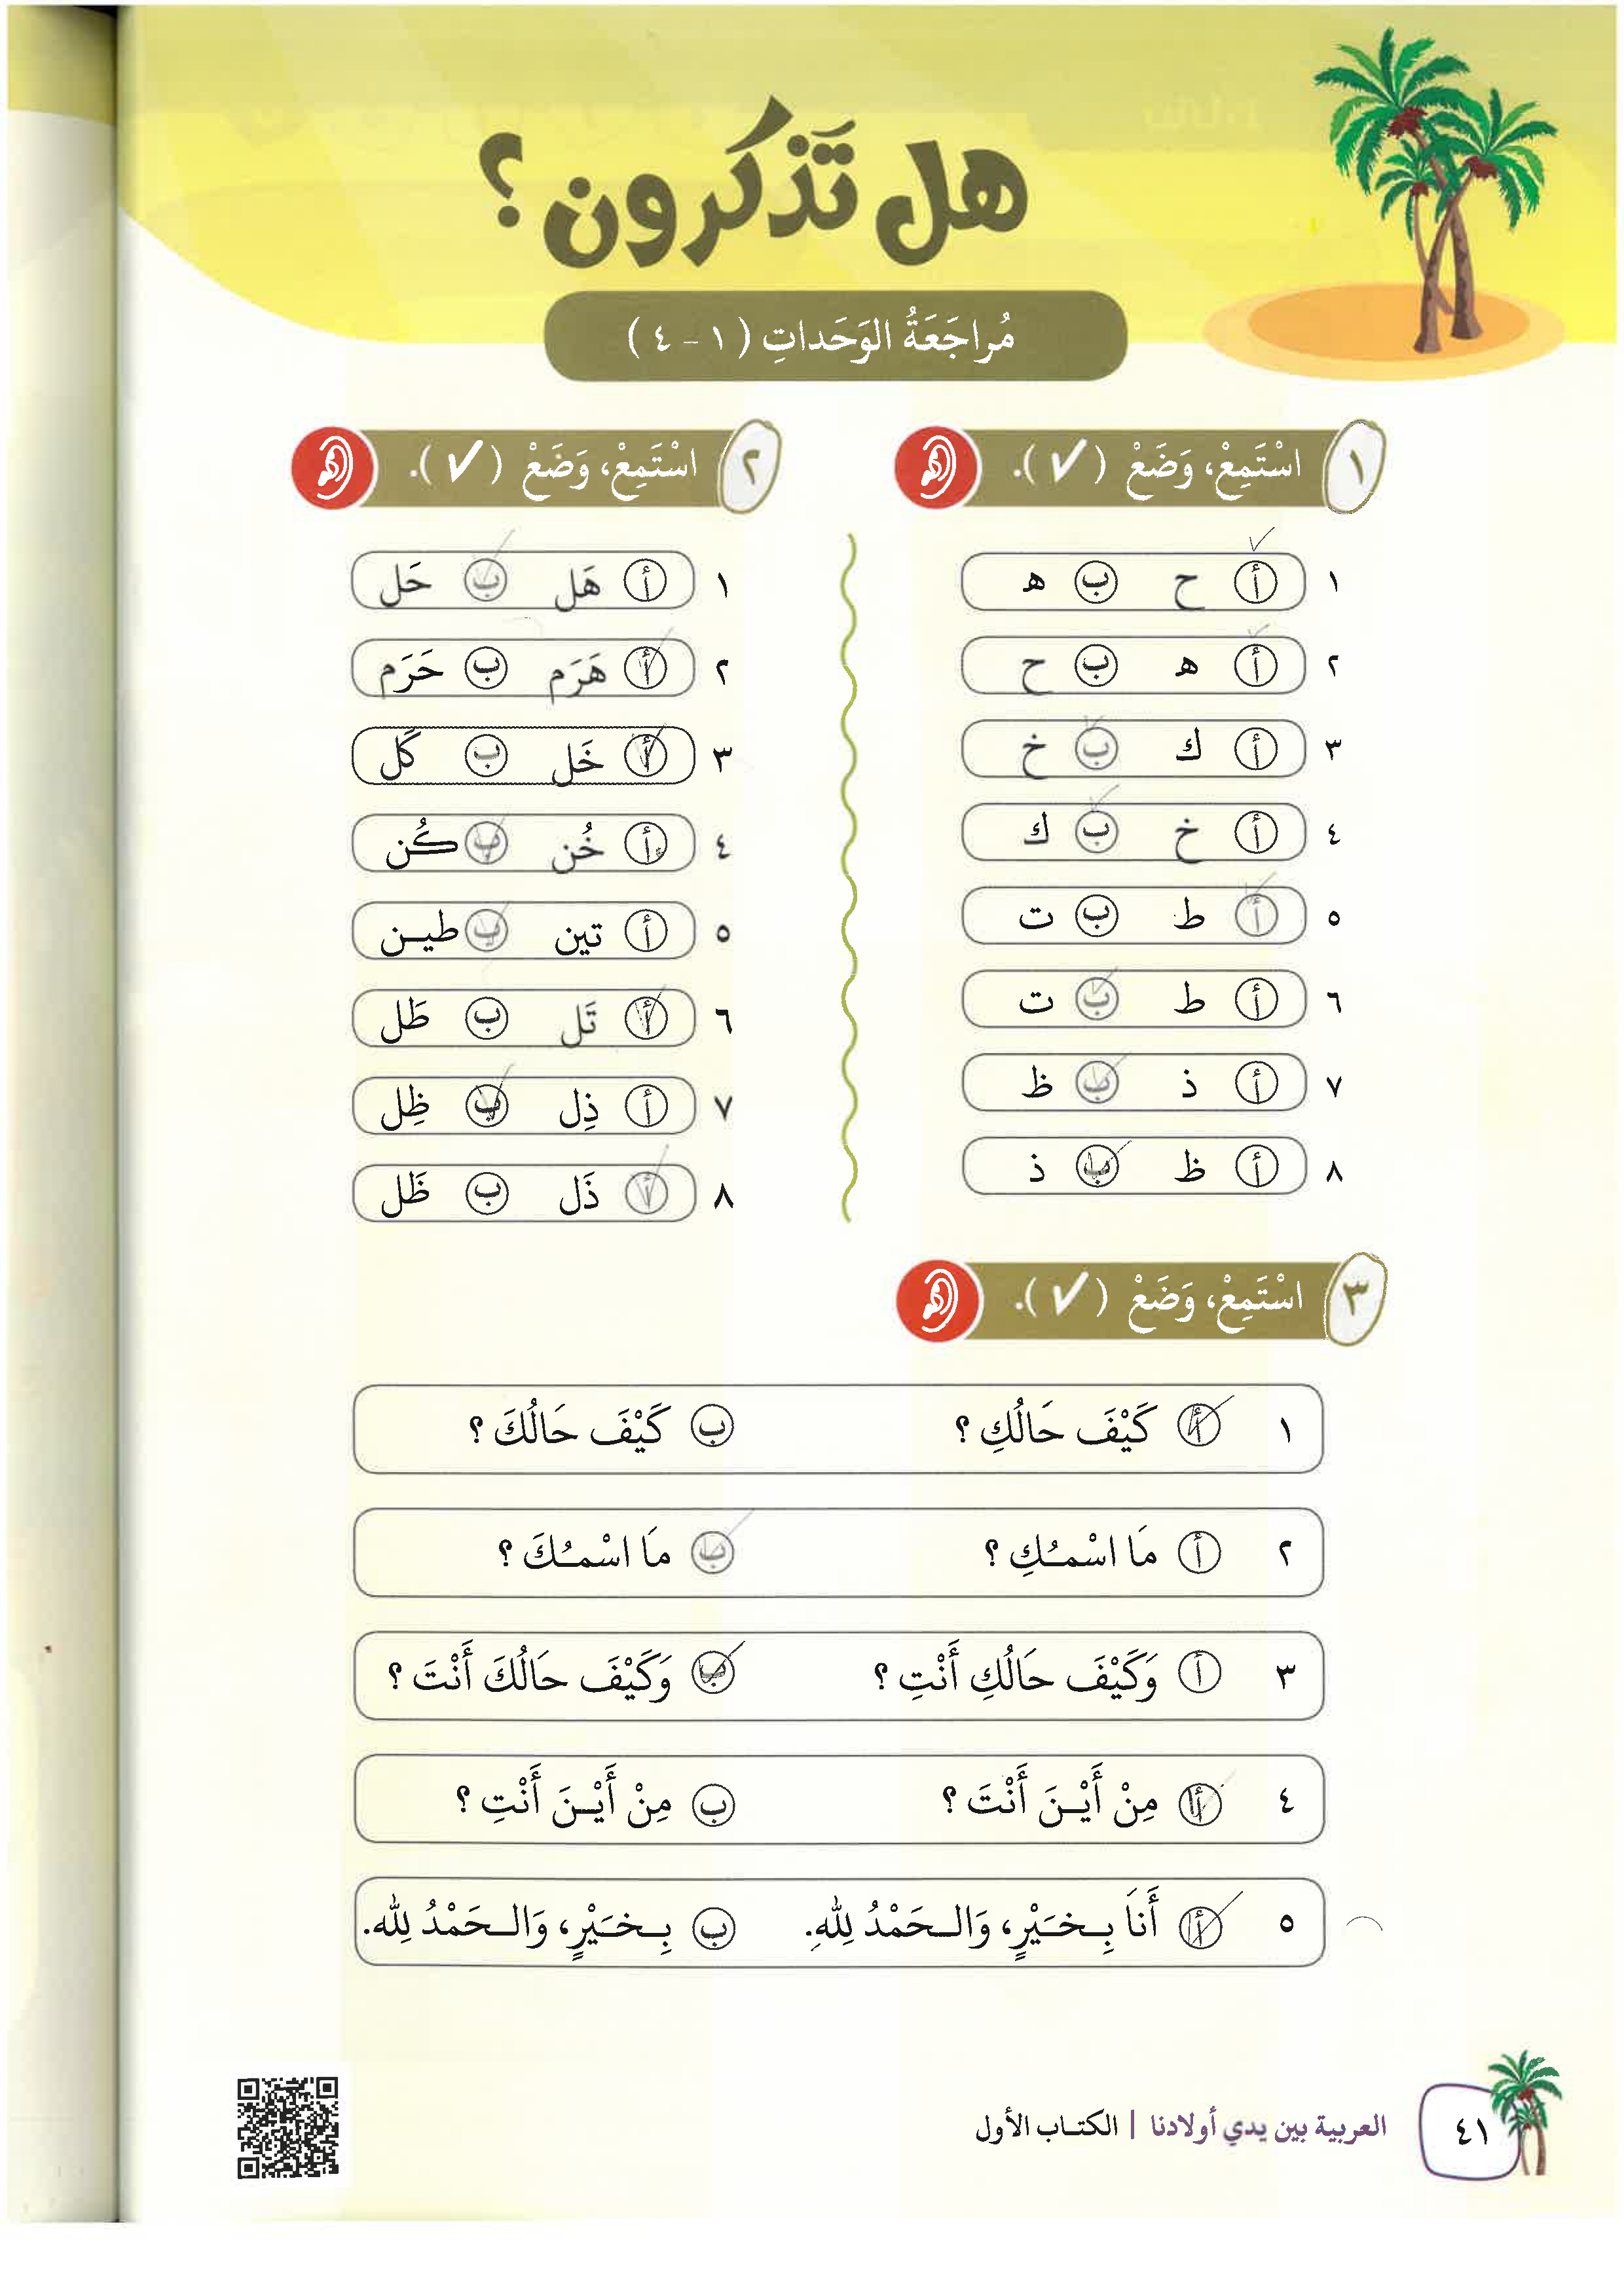 هل تَذكرون ؟
مُراجَعَةُ الوَحَداتِ ( ١ - ٤ )
١ اسْتَمِعْ، وَضَعْ ( ✓ ).
١ أ ح ب ه
٢ أ ه ب ح
٣ أ ك ب خ
٤ أ خ ب ك
٥ أ ط ب ت
٦ أ ط ب ت
٧ أ ذ ب ظ
٨ أ ظ ب ذ
٢ اسْتَمِعْ، وَضَعْ ( ✓ ).
١ أ هَل ب حَل
٢ أ هَرَم ب حَرَم
٣ أ خَل ب كَل
٤ أ خُن ب كُن
٥ أ تين ب طيـن
٦ أ تَل ب طَل
٧ أ ذِل ب ظِل
٨ أ ذَل ب ظَل
٣ اسْتَمِعْ، وَضَعْ ( ✓ ).
١ أ كَيْفَ حَالُكِ ؟ ب كَيْفَ حَالُكَ ؟
٢ أ مَا اسْمُكِ ؟ ب مَا اسْمُكَ ؟
٣ أ وَكَيْفَ حَالُكِ أَنْتِ ؟ ب وَكَيْفَ حَالُكَ أَنْتَ ؟
٤ أ مِنْ أَيْـنَ أَنْتَ ؟ ب مِنْ أَيْـنَ أَنْتِ ؟
٥ أ أَنَا بِـخَيْرٍ، وَالـحَمْدُ لِلّٰهِ. ب بِـخَيْرٍ، وَالـحَمْدُ لِلّٰهِ.
٤١ العربية بين يدي أولادنا | الكتـاب الأول